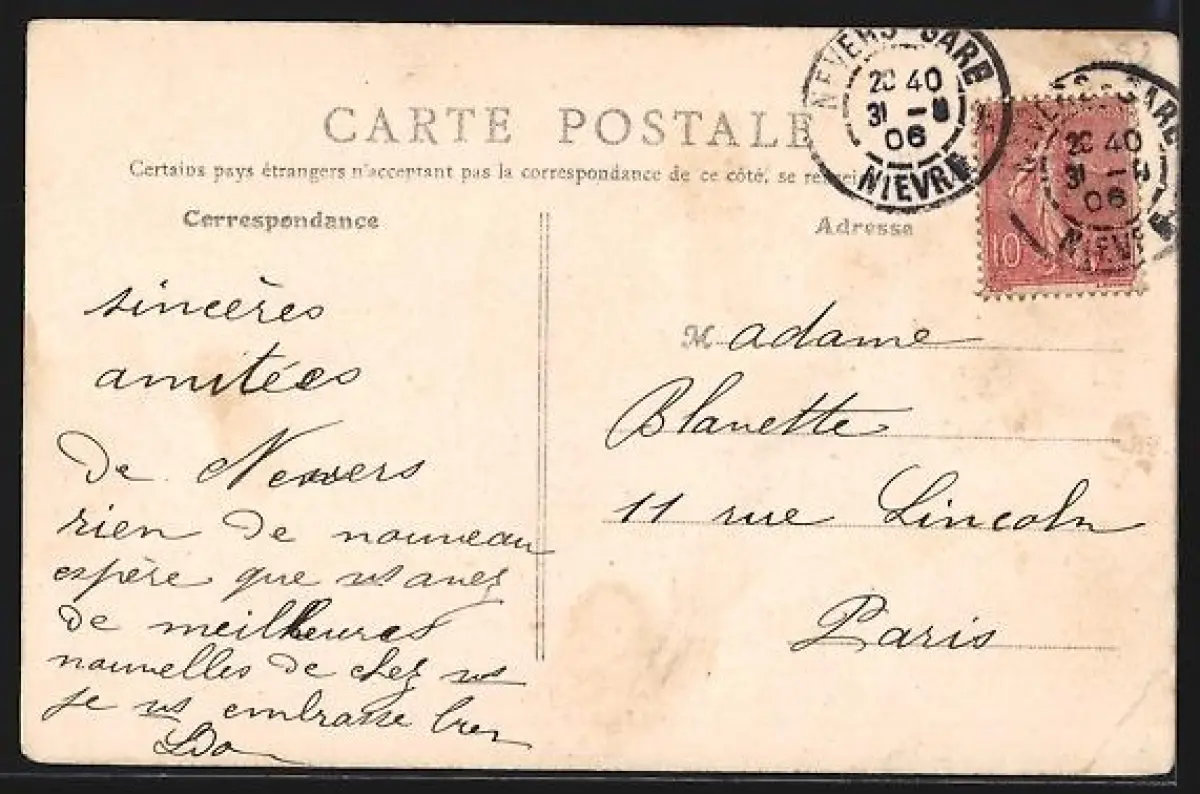 CARTE POSTALE
Certains pays étrangers n'acceptant pas la correspondance de ce côté, se
Correspondance
Adresse
NEVERS GARE
20 40
31 -8
06
NIEVRE
NEVERS GARE
20 40
31 -8
06
NIEVRE
10
sincères
amitées
de Nevers
rien de nouveau
espère que vs avez
de meilleures
nouvelles de chez vs
je vs embrasse bien
Madame
Blanette
11 rue Lincoln
Paris